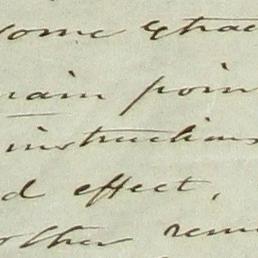 some extrac
main poin
instructions
d effect,
other rem